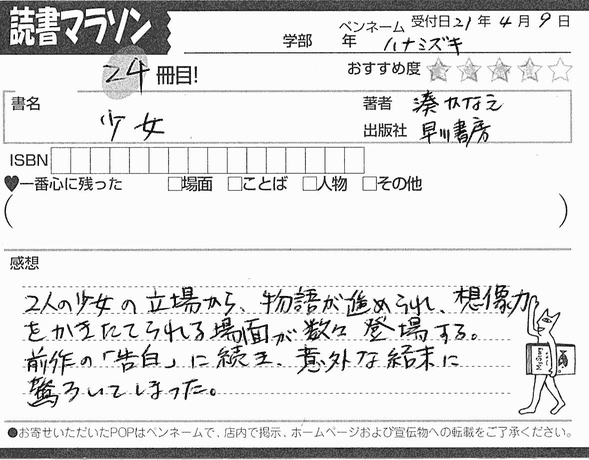 読書マラソン
学部 年 ペンネーム ハナミズキ 受付日21年4月9日
24冊目!
おすすめ度 ★★★★☆
書名 少女
著者 湊かなえ
出版社 早川書房
ISBN
♥一番心に残った □場面 □ことば □人物 □その他
( )
感想
2人の少女の立場から、物語が進められ、想像力
をかきたてられる場面が数々登場する。
前作の「告白」に続き、意外な結末に
驚ろいてしまった。
●お寄せいただいたPOPはペンネームで、店内で掲示、ホームページおよび宣伝物への転載をご了承ください。